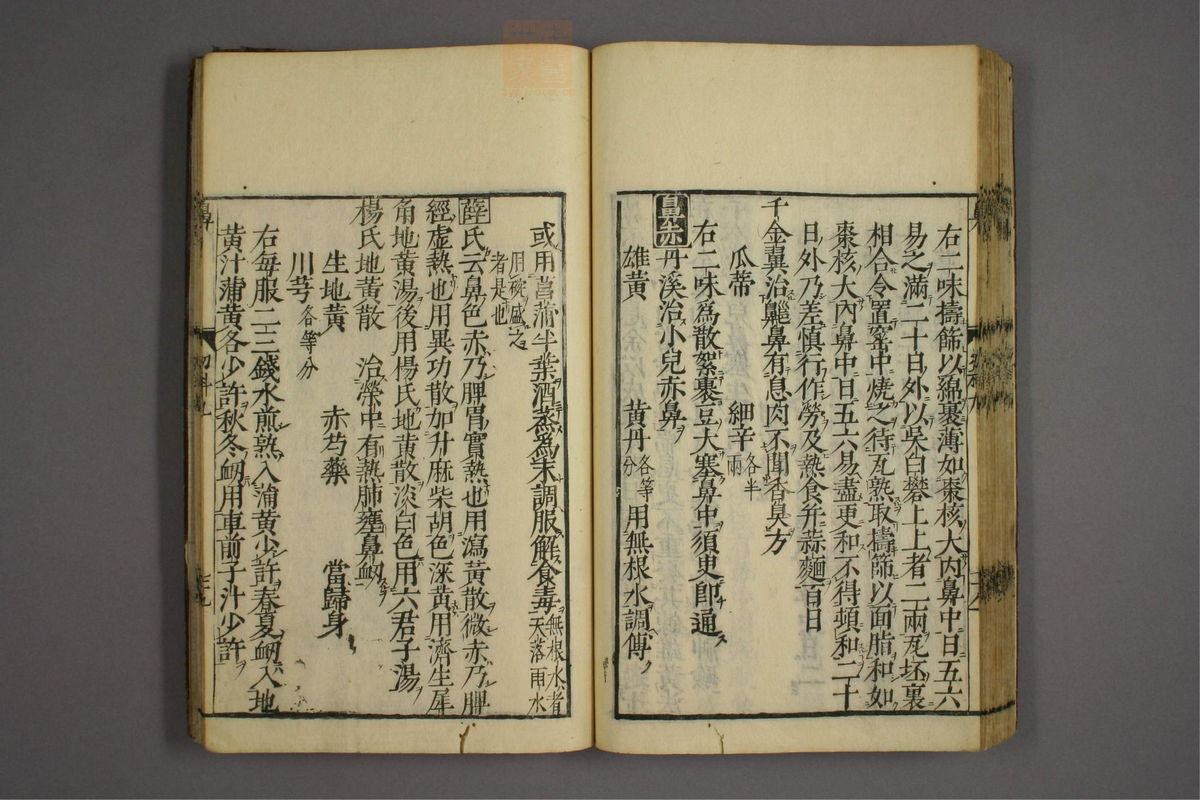 右二味擣篩以綿裹薄如棗核大内鼻中日五六
易之滿二十日外以吳白礬上上者二兩瓦坯裏
相合令置窰中燒之待瓦熟取擣篩以面脂和如
棗核大内鼻中日五六易盡更和不得頓和二十
日外乃差慎行作勞及熱食并蒜麵百日
千金翼治齆鼻有息肉不聞香臭方
瓜蒂 細辛各半兩
右二味爲散絮裹豆大塞鼻中須臾即通
鼻赤丹溪治小兒赤鼻
雄黄 黄丹各等分 用無根水調傅
或用菖蒲半葉酒蒸爲末調服解食毒無根水者天落雨水
用碗盛之者是也
薛氏云鼻色赤乃脾胃實熱也用瀉黄散微赤乃脾
經虛熱也用異功散加升麻柴胡色深黄用濟生犀
角地黄湯後用楊氏地黄散淡白色用六君子湯
楊氏地黄散 治榮中有熱肺壅鼻衂
生地黄 赤芍藥 當歸身
川芎各等分
右每服二三錢水煎熟入蒲黄少許春夏衂入地
黄汁蒲黄各少許秋冬衂用車前子汁少許